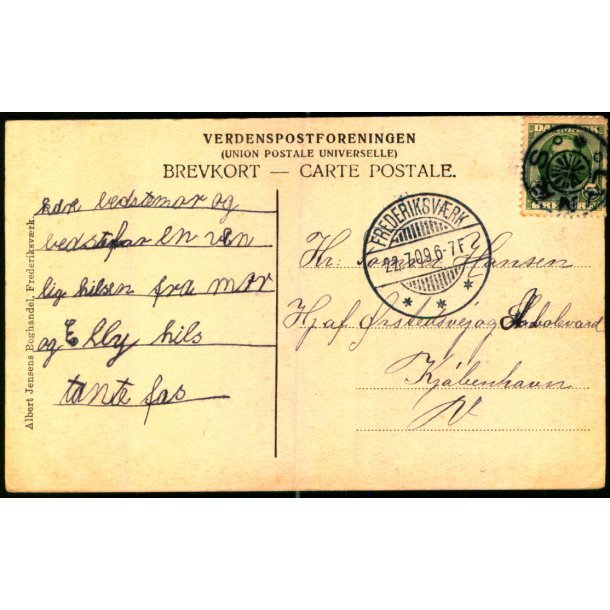 VERDENSPOSTFORENINGEN
(UNION POSTALE UNIVERSELLE)
BREVKORT — CARTE POSTALE.
kære bedstemor og
bedstefar en ven
lig hilsen fra mor
og Elly hils
tante fas
Albert Jensens Boghandel, Frederiksværk.
DANMARK
FREDERIKSVÆRK
22.7.09.6-7F
* * *
Hr. Hansen
Hj af Ørstedsvej og
Kjøbenhavn
V